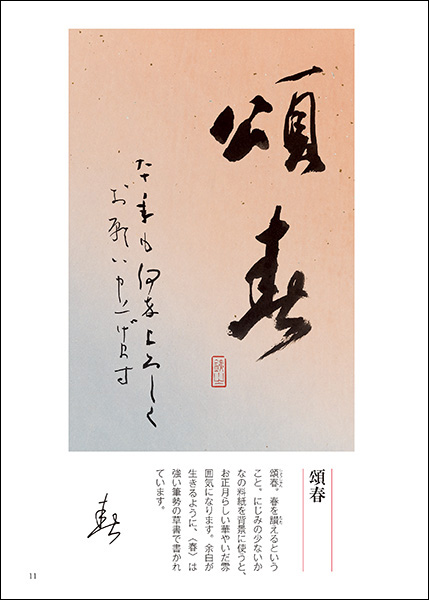 頌春
年も何卒よろしく
お願い申し上げます
頌春
頌春。春を讃えるという
こと。にじみの少ないか
なの料紙を背景に使うと、
お正月らしい華やいだ雰
囲気になります。余白が
生きるように、〈春〉は
強い筆勢の草書で書かれ
ています。
春
11